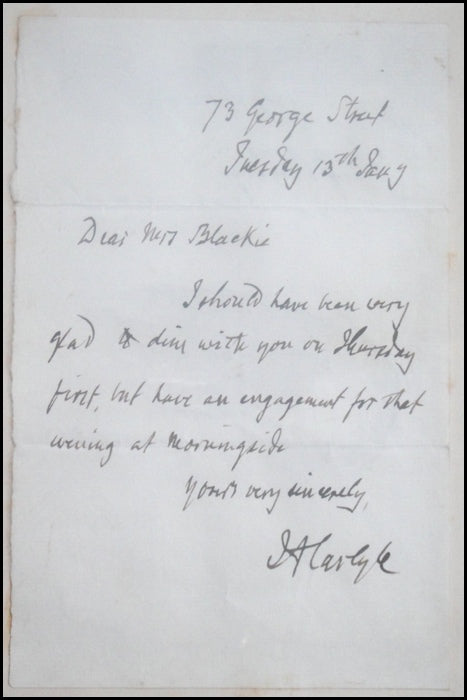 73 George Street
Tuesday 13th Jany
Dear Mrs Blackie
I should have been very
glad to dine with you on Thursday
first, but have an engagement for that
evening at Morningside
Yours very sincerely,
J A Carlyle